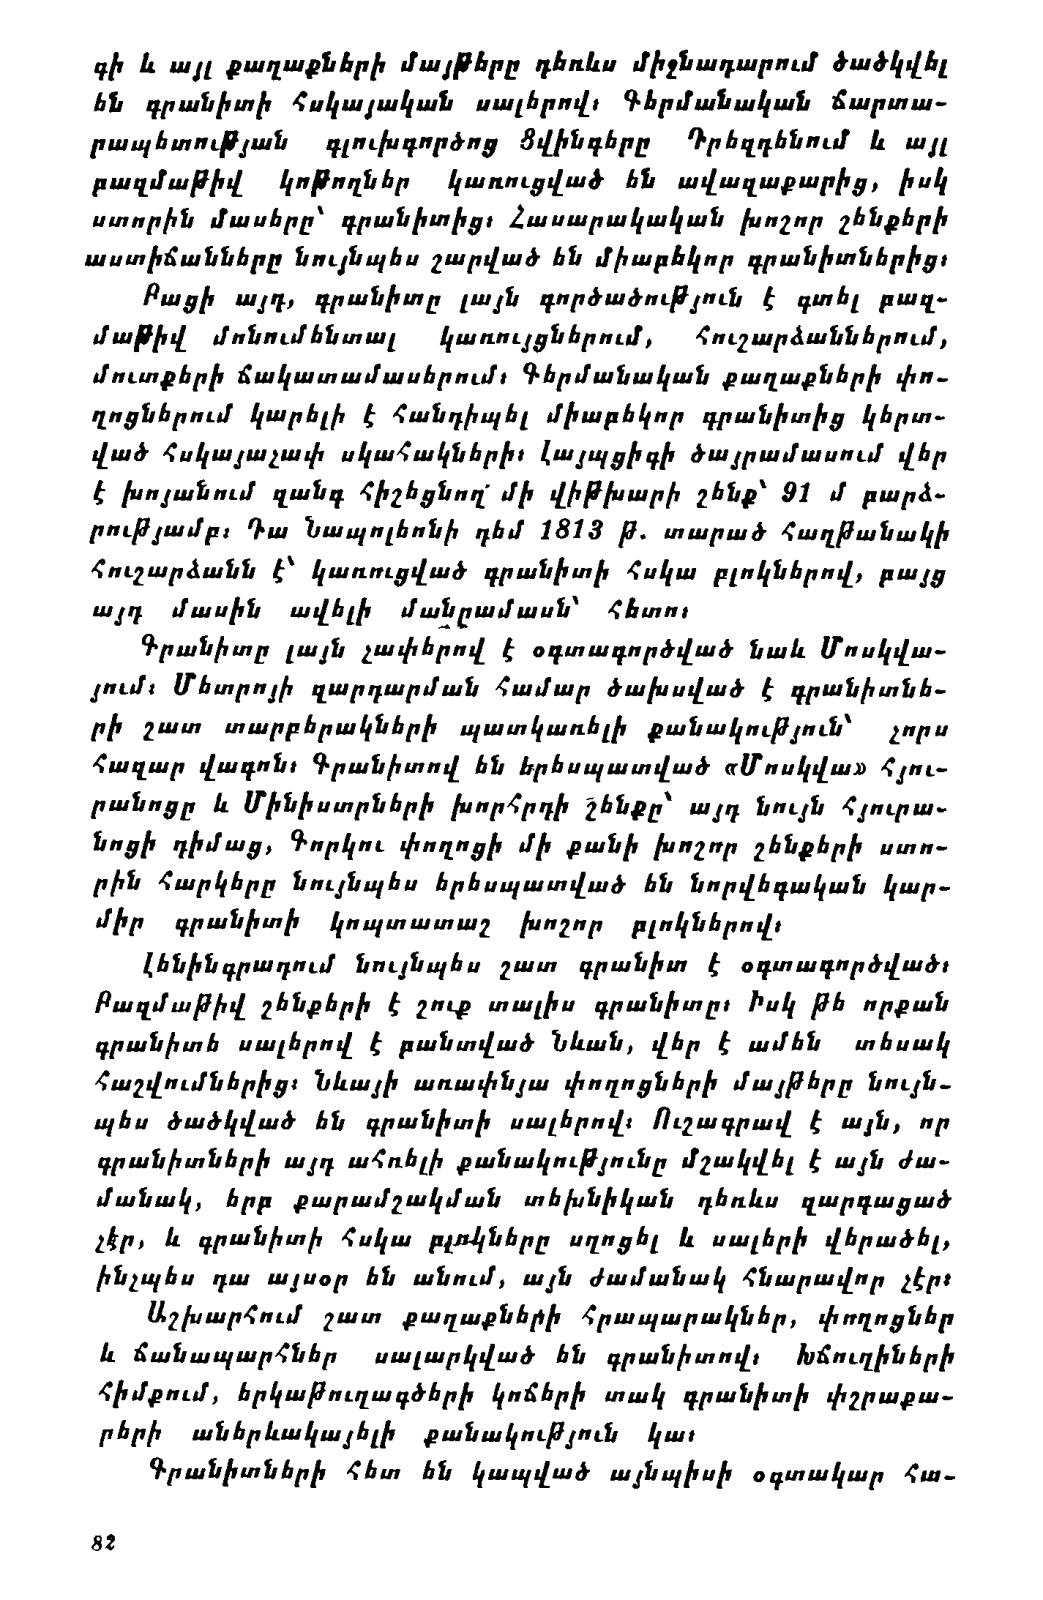 գի և այլ քաղաքների մայթերը դեռևս միջնադարում ծածկվել
են գրանիտի հսկայական սալերով։ Գերմանական ճարտա-
րապետության գլուխգործոց Ցվինգերը Դրեզդենում և այլ
բազմաթիվ կոթողներ կառուցված են ավազաքարից, իսկ
ստորին մասերը՝ գրանիտից։ Հասարակական խոշոր շենքերի
աստիճանները նույնպես շարված են միաբեկոր գրանիտներից։
Բացի այդ, գրանիտը լայն գործածություն է գտել բազ-
մաթիվ մոնումենտալ կառույցներում, հուշարձաններում,
մուտքերի ճակատամասերում։ Գերմանական քաղաքների փո-
ղոցներում կարելի է հանդիպել միաբեկոր գրանիտից կերտ-
ված հսկայաչափ սկահակների։ Լայպցիգի ծայրամասում վեր
է խոյանում զանգ հիշեցնող մի վիթխարի շենք՝ 91 մ բարձ-
րությամբ։ Դա Նապոլեոնի դեմ 1813 թ. տարած հաղթանակի
հուշարձանն է՝ կառուցված գրանիտի հսկա բլոկներով, բայց
այդ մասին ավելի մանրամասն՝ հետո։
Գրանիտը լայն չափերով է օգտագործված նաև Մոսկվա-
յում։ Մետրոյի զարդարման համար ծախսված է գրանիտնե-
րի շատ տարբերակների պատկառելի քանակություն՝ չորս
հազար վագոն։ Գրանիտով են երեսպատված «Մոսկվա» հյու-
րանոցը և Մինիստրների խորհրդի շենքը՝ այդ նույն հյուրա-
նոցի դիմաց, Գորկու փողոցի մի քանի խոշոր շենքերի ստո-
րին հարկերը նույնպես երեսպատված են նորվեգական կար-
միր գրանիտի կոպտատաշ խոշոր բլոկներով։
Լենինգրադում նույնպես շատ գրանիտ է օգտագործված։
Բազմաթիվ շենքերի է շուք տալիս գրանիտը։ Իսկ թե որքան
գրանիտե սալերով է բանտված Նևան, վեր է ամեն տեսակ
հաշվումներից։ Նևայի առափնյա փողոցների մայթերը նույն-
պես ծածկված են գրանիտի սալերով։ Ուշագրավ է այն, որ
գրանիտների այդ ահռելի քանակությունը մշակվել է այն ժա-
մանակ, երբ քարամշակման տեխնիկան դեռևս զարգացած
չէր, և գրանիտի հսկա բլոկները սղոցել և սալերի վերածել,
ինչպես դա այսօր են անում, այն ժամանակ հնարավոր չէր։
Աշխարհում շատ քաղաքների հրապարակներ, փողոցներ
և ճանապարհներ սալարկված են գրանիտով։ Խճուղիների
հիմքում, երկաթուղագծերի կոճերի տակ գրանիտի փշրաքա-
րերի աներևակայելի քանակություն կա։
Գրանիտների հետ են կապված այնպիսի օգտակար հա-
82